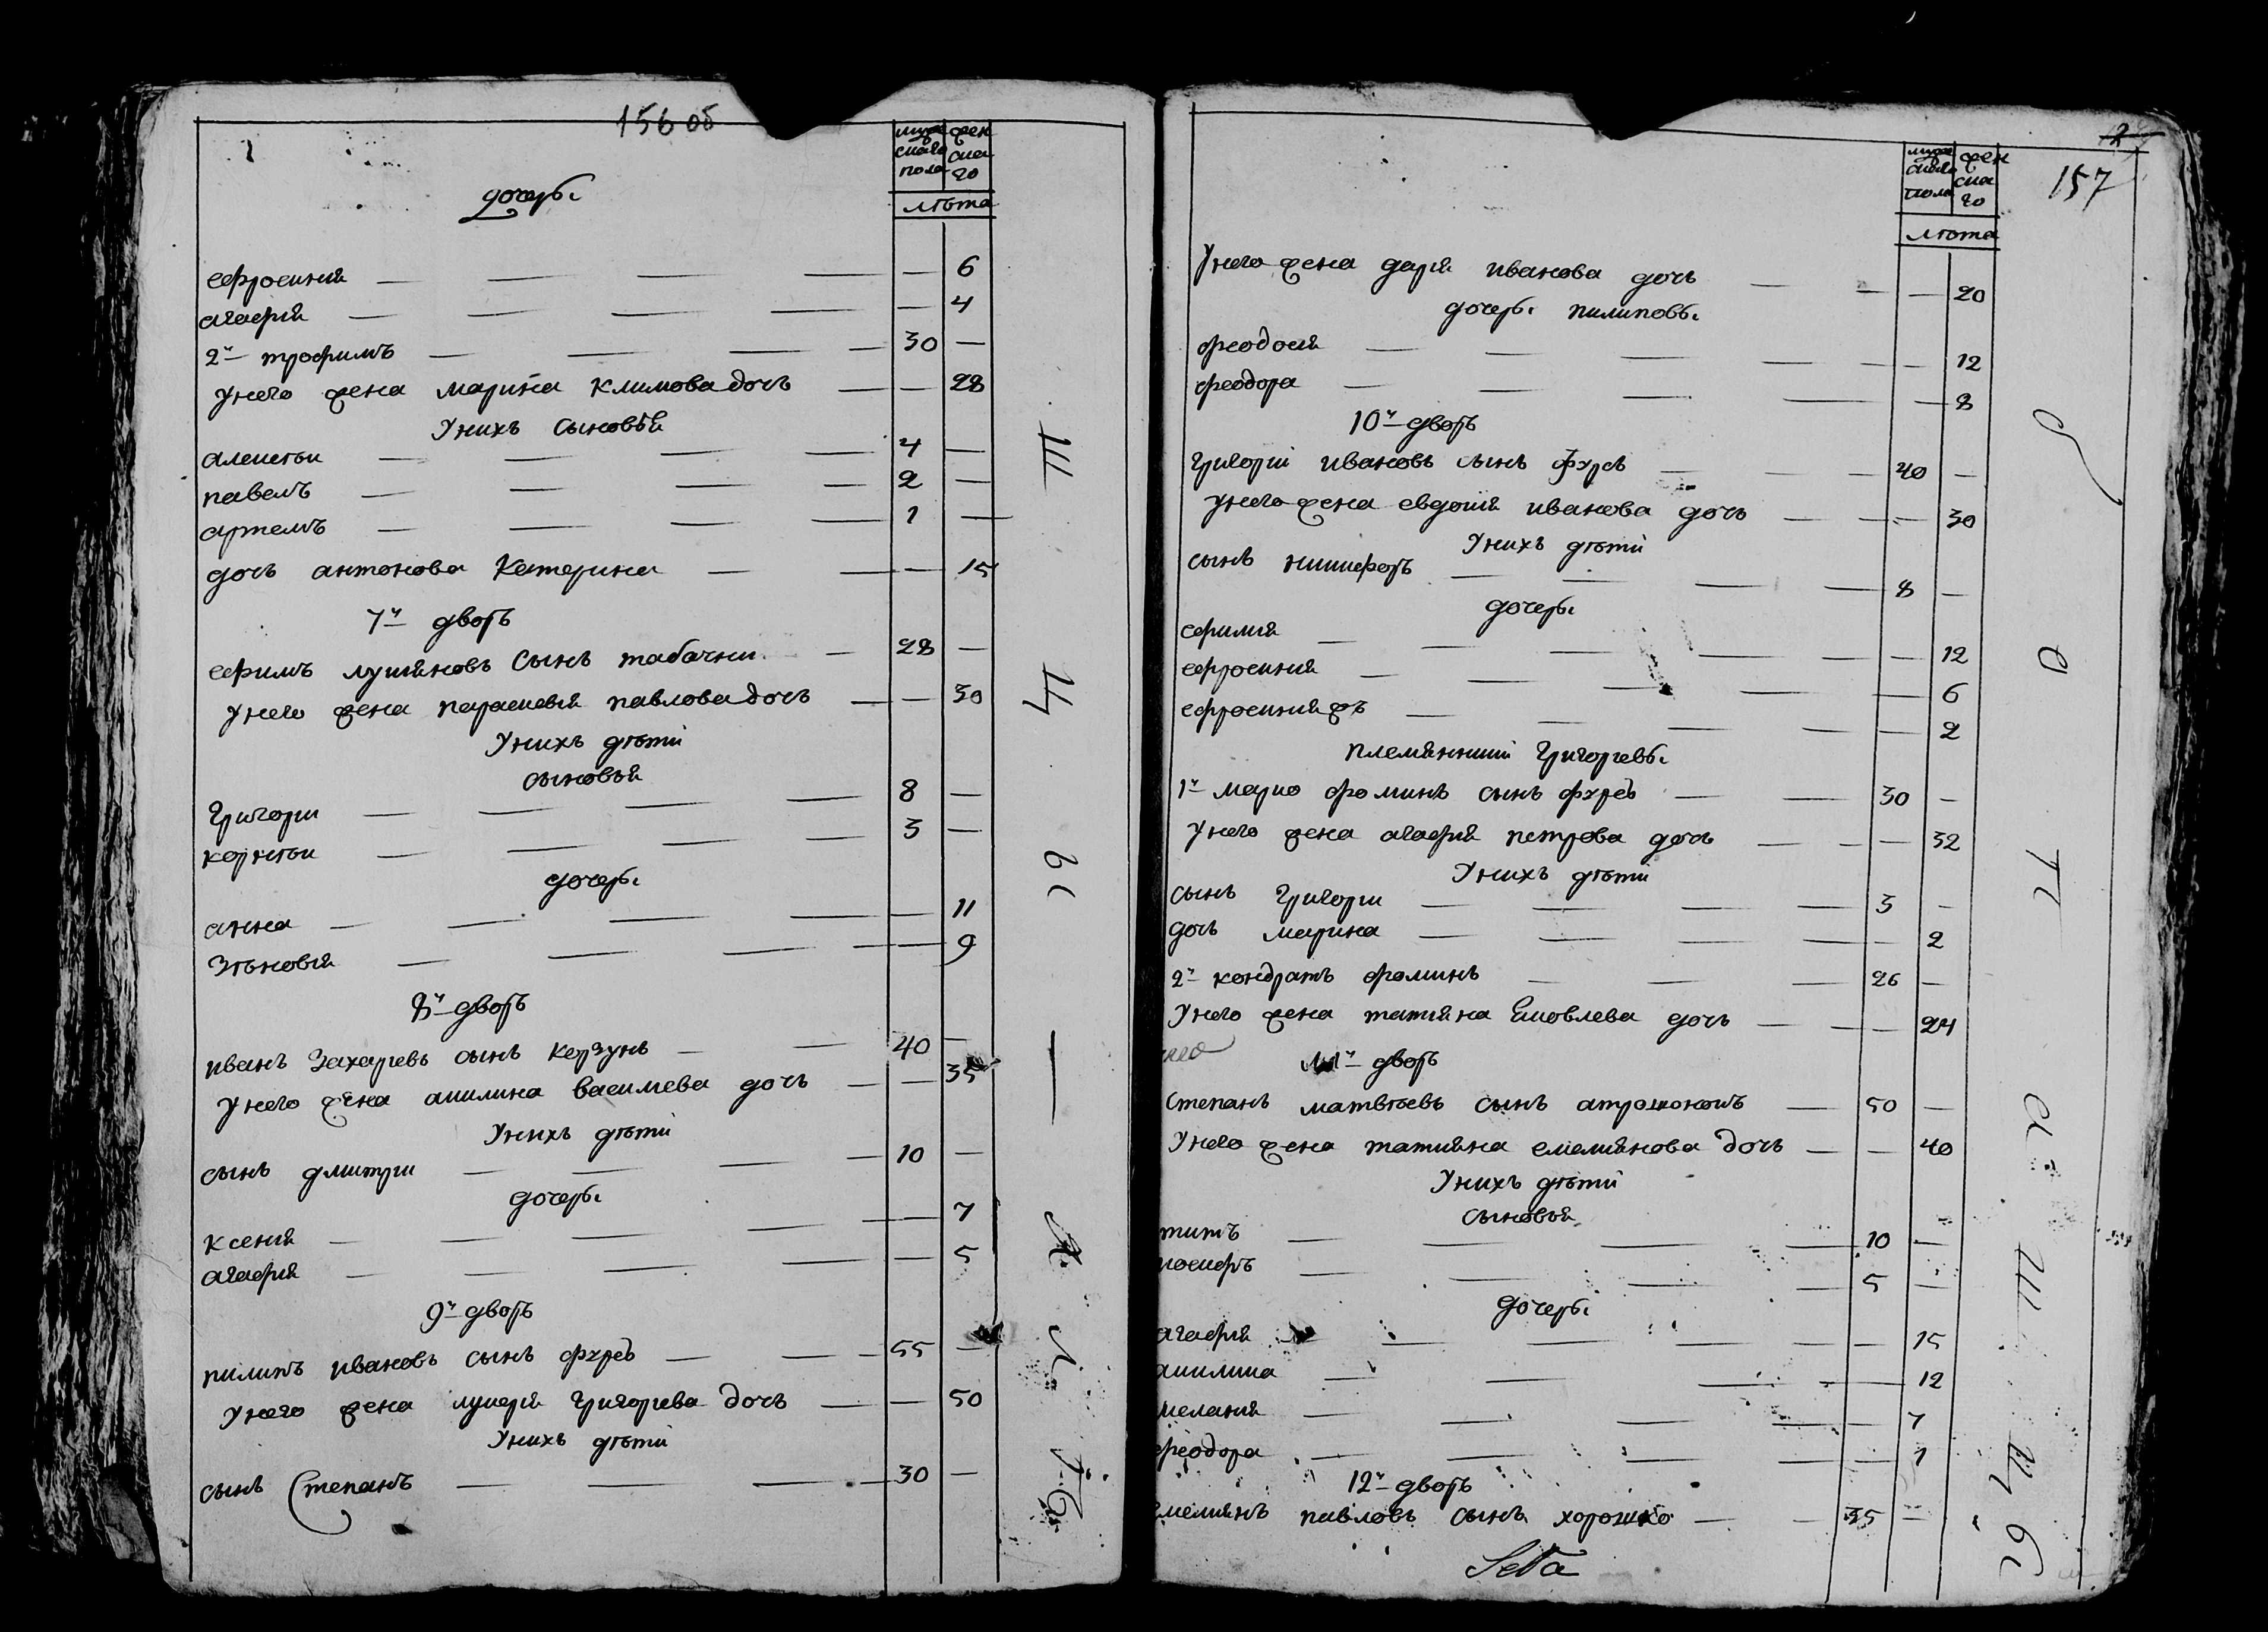 156 об
мужескаго пола
женскаго
лѣта
дочеры
ефросиния — — — — — 6
агафия — — — — — 4
2й трофимъ — — — — 30 —
У него жена марина климова дочь — — 28
У нихъ сыновѣя
алексѣи — — — — 4 —
павелъ — — — — 2 —
артемъ — — — — 1 —
дочь антонова катерина — — — 15
7й дворъ
ефимъ лукяновъ сынъ табачни — 28 —
У него жена параскевия павлова дочь — — 30
У нихъ дѣти
сыновья
григори — — — — 8 —
корнѣи — — — — 3 —
дочеры
анна — — — — — 11
зѣновия — — — — — 9
8й дворъ
иванъ захариевъ сынъ корзунъ — — 40 —
У него жена акилина василиева дочь — — 35
У нихъ дѣти
сынъ дмитри — — — — 10 —
дочеры
ксения — — — — — 7
агафия — — — — — 5
9й дворъ
пилипъ ивановъ сынъ фурсъ — — 55 —
У него жена лукерия григориева дочь — — 50
У нихъ дѣти
сынъ Степанъ — — — 30 —
157
мужескаго пола
женскаго
лѣта
У него жена дария иванова дочь — — — 20
дочеры пилиповы
феодосия — — — — — 12
феодора — — — — 8
10й дворъ
григорий ивановъ сынъ фурсъ — — 40 —
У него жена евдокия иванова дочь — — — 30
У нихъ дѣти
сынъ никифоръ — — — — 8 —
дочеры
ефимия — — — — — 12
ефросиния — — — — 6
ефросиния жъ — — — — 2
племянники григориевы
1й марко фоминъ сынъ фурсъ — — 30 —
У него жена агафия петрова дочь — — — 32
У нихъ дѣти
сынъ григори — — — — 3 —
дочь марина — — — — — 2
2й кондратъ фоминъ — — — 26 —
У него жена татияна Яковлева дочь — — — 24
11й дворъ
Степанъ матвѣевъ сынъ атрошонокъ — 50 —
У него жена татияна емелиянова дочь — — 40
У нихъ дѣти
сыновья
титъ — — — — 10 —
иосифъ — — — — 5 —
дочеры
агафия — — — — — 15
акилина — — — — — 12
мелания — — — — — 7
феодора — — — — — 1
12й дворъ
емелиянъ павловъ сынъ хорошко — — 35 —